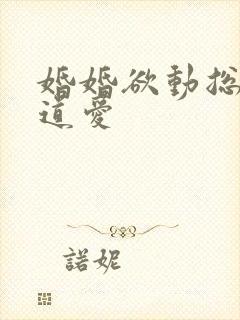 婚婚欲動總
道愛
諾妮